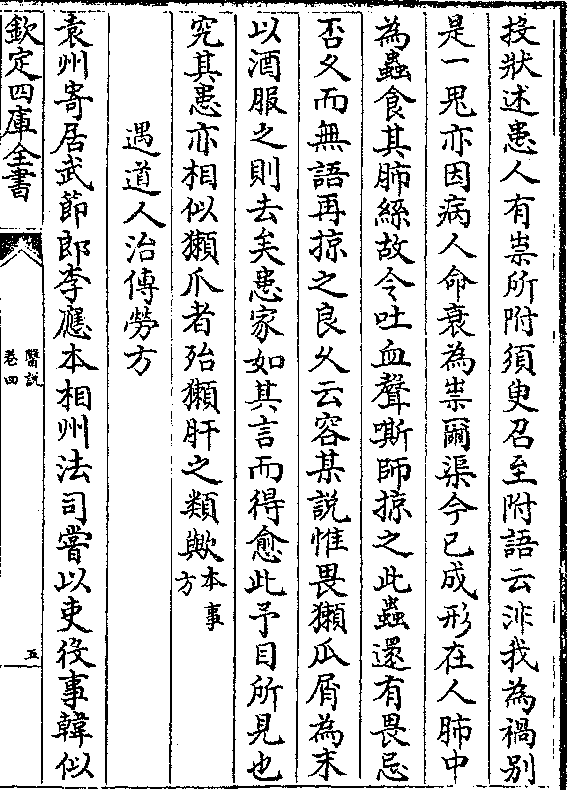 投狀述患人有祟所附須臾召至附語云非我為禍别
是一鬼亦因病人命衰為祟爾渠今已成形在人肺中
為蟲食其肺絲故令吐血聲嘶師掠之此蟲還有畏忌
否久而無語再掠之良久云容某説惟畏獺瓜屑為末
以酒服之則去矣患家如其言而得愈此予目所見也
究其患亦相似獺爪者殆獺肝之類歟本事方
遇道人治傳勞方
袁州寄居武節郎李應本相州法司嘗以吏役事韓似
欽定四庫全書
醫説
卷四
五